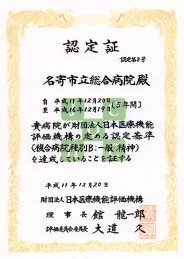 認定証
認定第8号
名寄市立総合病院殿
自 平成11年12月20日
至 平成16年12月19日
(5年間)
貴病院が財団法人日本医療機能
評価機構の定める認定基準
(複合病院種別B:一般・精神)
を達成していることを証する
平成11年12月20日
財団法人日本医療機能評価機構
理事長 舘 龍一郎
評価委員会委員長 大道 久